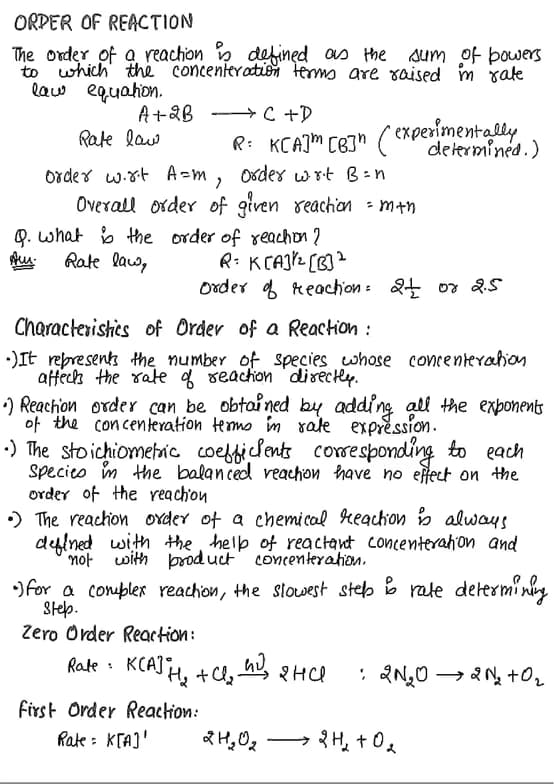 ORDER OF REACTION
The order of a reaction is defined as the sum of powers
to which the concenteration terms are raised in rate
law equation.
A+2B ⟶ C +D
Rate law R= K[A]ᵐ [B]ⁿ (experimentally
determined.)
order w.r.t A=m , order w.r.t B=n
Overall order of given reaction = m+n
Q. what is the order of reaction?
Ans: Rate law, R= K[A]^1/2 [B]²
Order of reaction= 2 1/2 or 2.5
Characteristics of Order of a Reaction :
•)It represents the number of species whose concenteration
affects the rate of reaction directly.
•) Reaction order can be obtained by adding all the exponents
of the concenteration terms in rate expression.
•) The stoichiometric coefficients corresponding to each
species in the balanced reaction have no effect on the
order of the reaction
•) The reaction order of a chemical reaction is always
defined with the help of reactant concenteration and
not with product concenteration.
•)for a complex reaction, the slowest step is rate determining
step.
Zero Order Reaction:
Rate = K[A]° H₂ + Cl₂ ⟶ hν 2HCl : 2N₂O ⟶ 2N₂ + O₂
First Order Reaction:
Rate = K[A]' 2H₂O₂ ⟶ 2H₂ + O₂